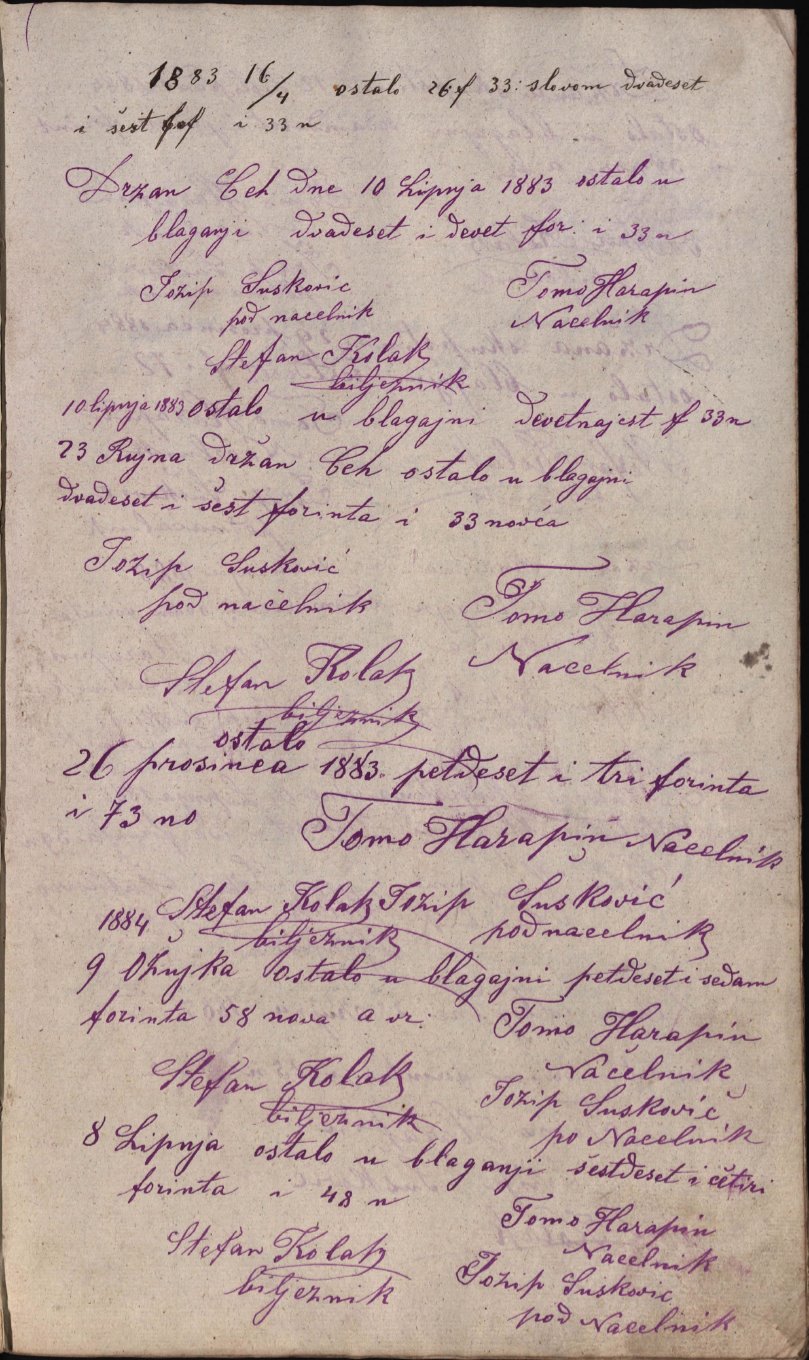 1883 16/4 ostalo 26 f 33: slovom dvadeset
i šest for i 33 n
Držan Ceh Dne 10 Lipnja 1883 ostalo u
blaganji dvadeset i devet for: i 33 n
Jozip Suskovic Tomo Harapin
pod nacelnik Nacelnik
Stefan Kolak
biljeznik
10 lipnja 1883 ostalo u blagajni devetnajest f 33 n
23 Rujna Držan Ceh ostalo u blagajni
dvadeset i šest forinta i 33 novća
Jozip Susković Tomo Harapin
pod načelnik Načelnik
Stefan Kolak
biljeznik
ostalo
26 prosinca 1883. petdeset i tri forinta
i 73 no Tomo Harapin Nacelnik
1884 Štefan Kolak Jozip Šusković
biljeznik podnacelnik
9 Ožujka ostalo u blagajni petdeset i sedam
forinta 58 nova a vr: Tomo Harapin
Načelnik
Stefan Kolak Jozip Susković
biljeznik po Nacelnik
8 Lipnja ostalo u blaganji šestdeset i četiri
forinta i 48 n
Tomo Harapin
Nacelnik
Stefan Kolak Jozip Suskovic
biljeznik pod Nacelnik